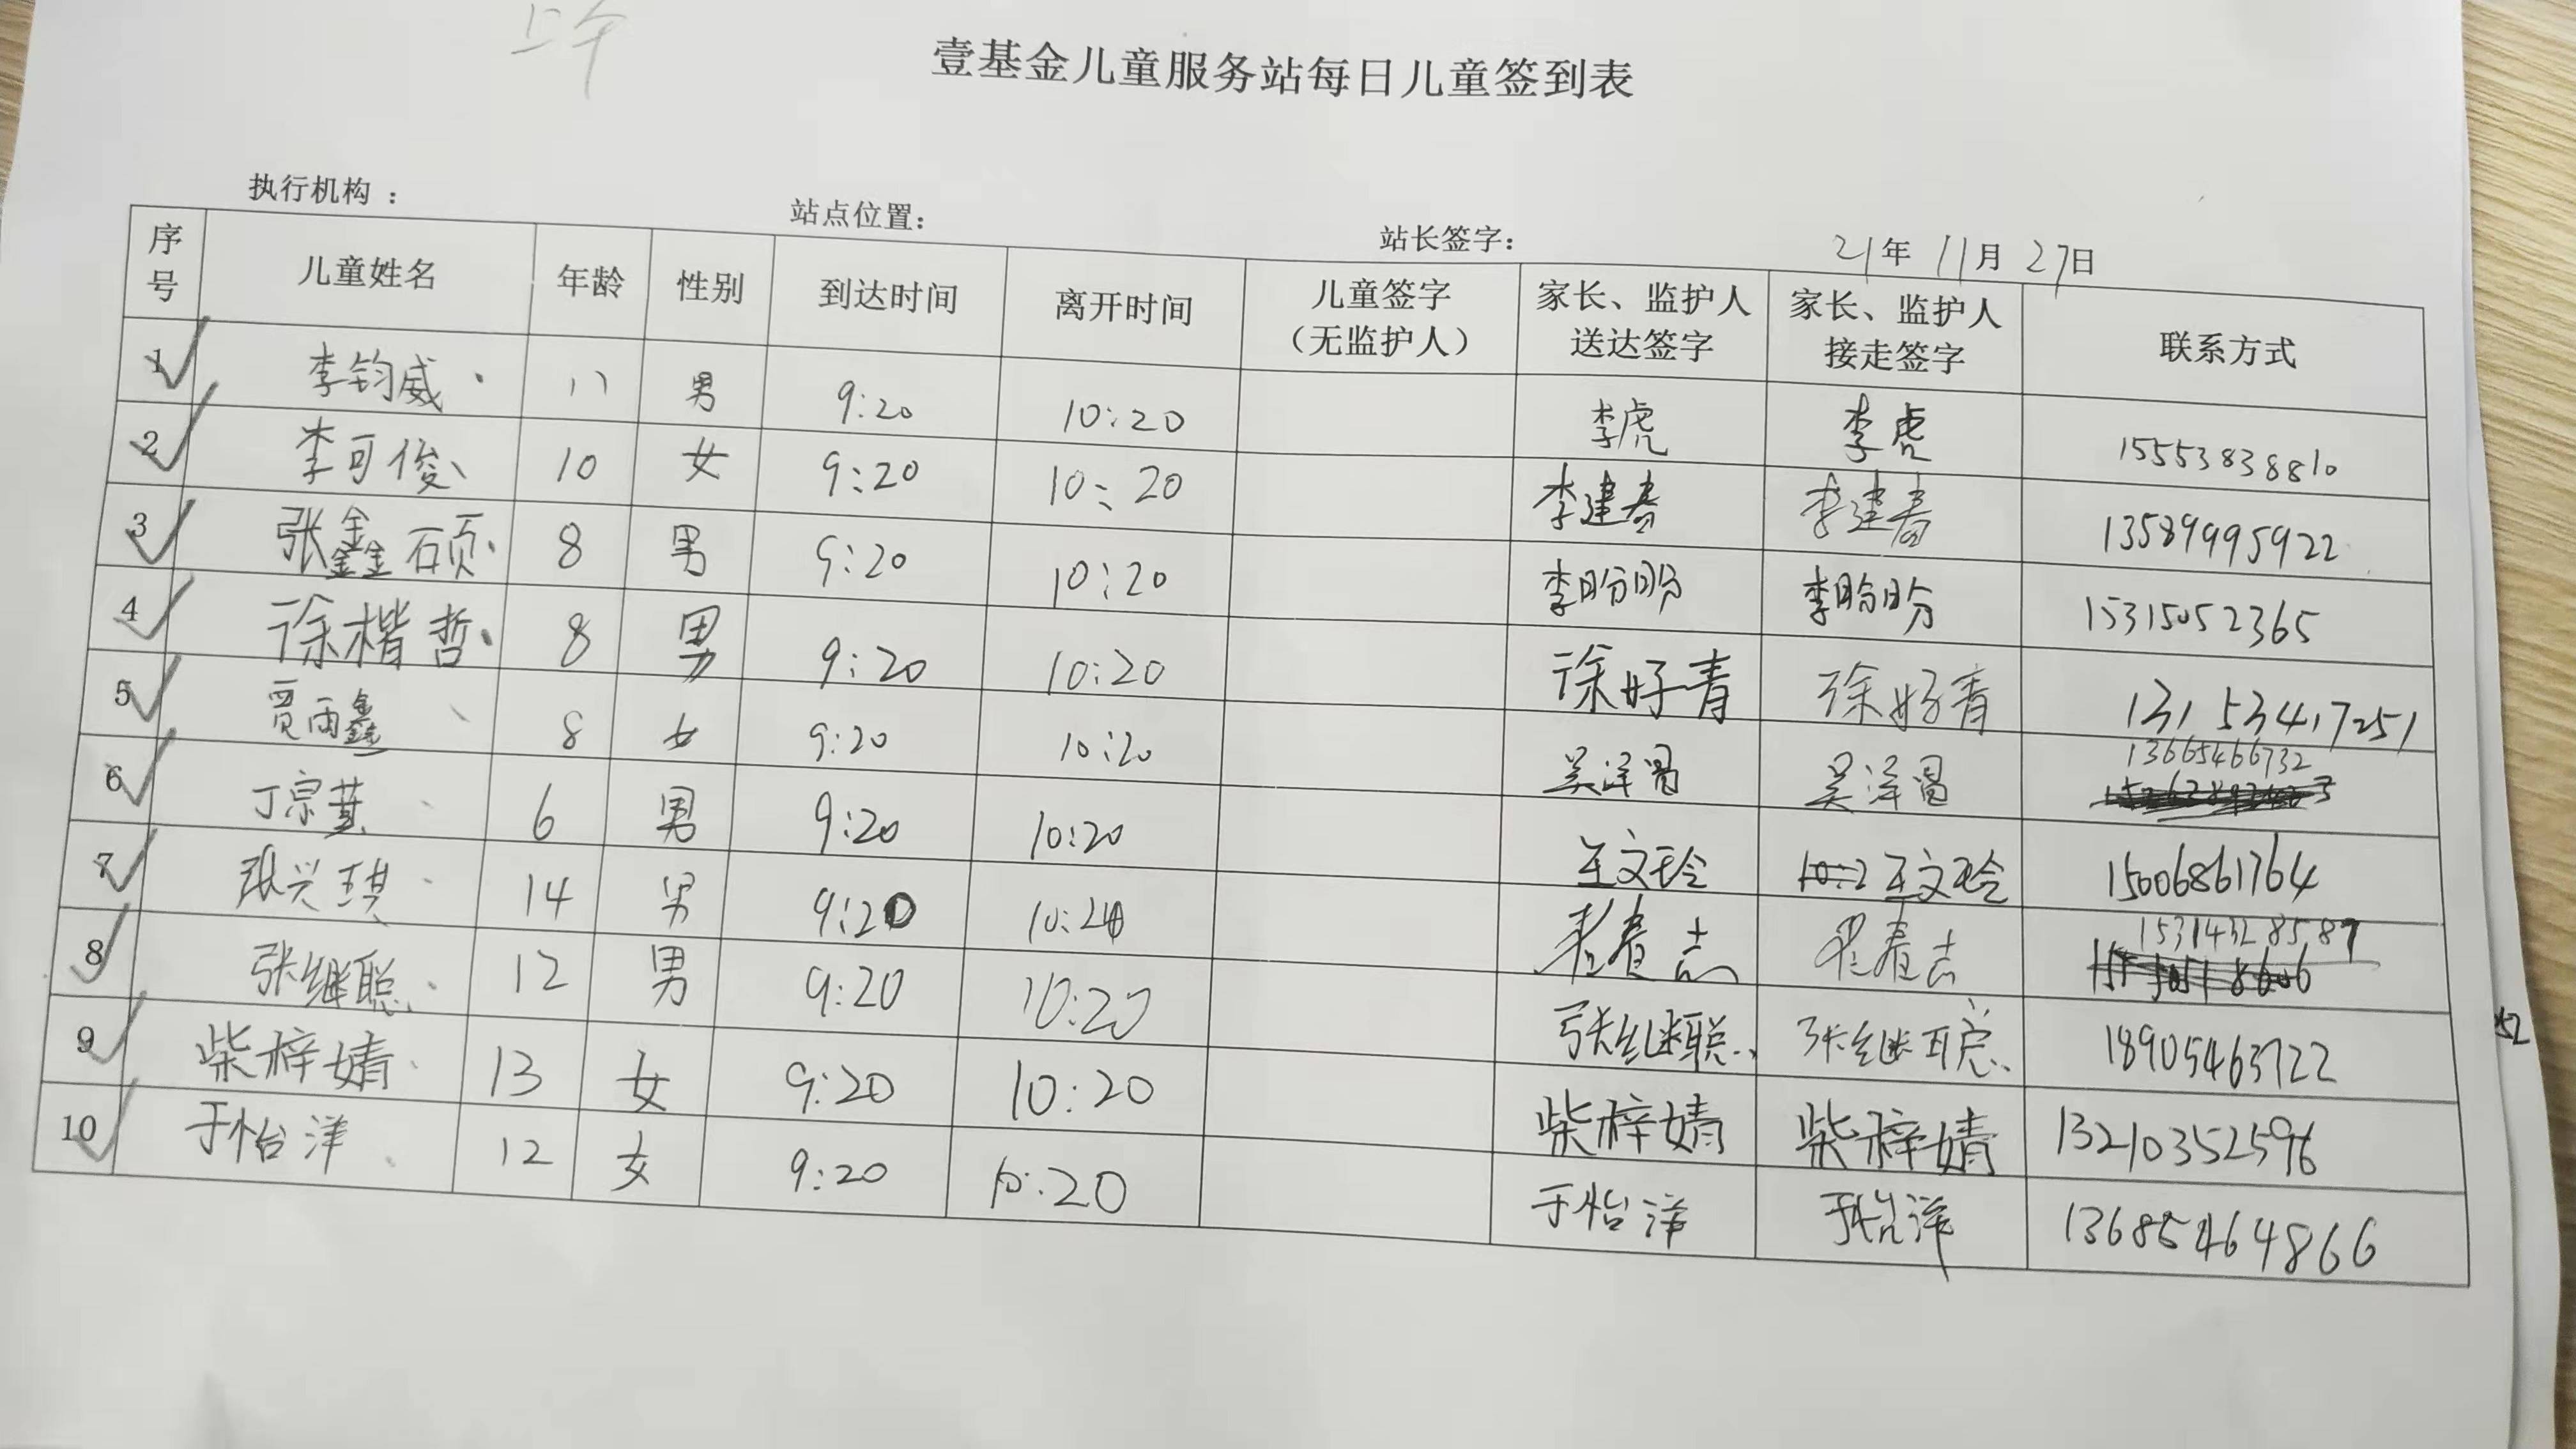 上午
壹基金儿童服务站每日儿童签到表
执行机构： 站点位置： 站长签字： 21年 11月 27日
序号 儿童姓名 年龄 性别 到达时间 离开时间 儿童签字（无监护人） 家长、监护人送达签字 家长、监护人接走签字 联系方式
1 李钧威 11 男 9:20 10:20 李虎 李虎 15553838810
2 李可俊 10 女 9:20 10:20 李建春 李建春 13589995922
3 张鑫硕 8 男 9:20 10:20 李盼盼 李盼盼 15315052365
4 徐楷哲 8 男 9:20 10:20 徐好青 徐好青 13153417251
5 贾雨鑫 8 女 9:20 10:20 13665466732
6 丁宗 6 男 9:20 10:20 王文玲 王文玲 15006861764
7 张兴琪 14 男 9:20 10:20 15314328587
8 张继聪 12 男 9:20 10:20 张继聪 张继聪 18905463722
9 柴梓婧 13 女 9:20 10:20 柴梓婧 柴梓婧 13210352596
10 于怡洋 12 女 9:20 10:20 于怡洋 于怡洋 13685464866